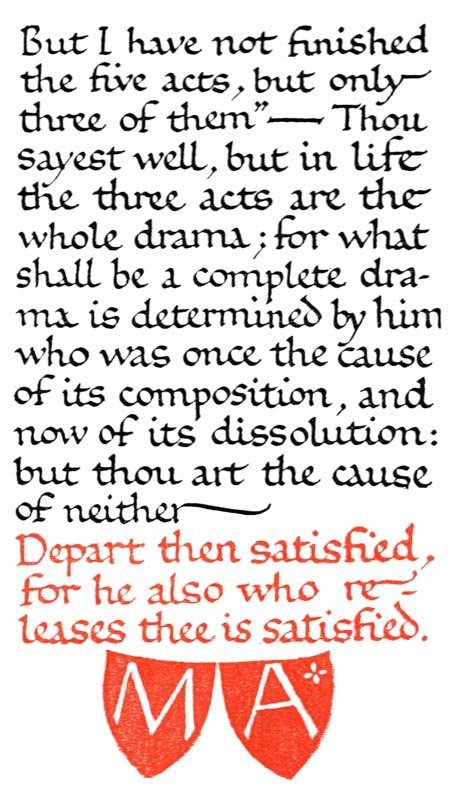 But I have not finished
the five acts, but only
three of them”— Thou
sayest well, but in life
the three acts are the
whole drama; for what
shall be a complete dra-
ma is determined by him
who was once the cause
of its composition, and
now of its dissolution:
but thou art the cause
of neither—
Depart then satisfied,
for he also who re-
leases thee is satisfied.
M A